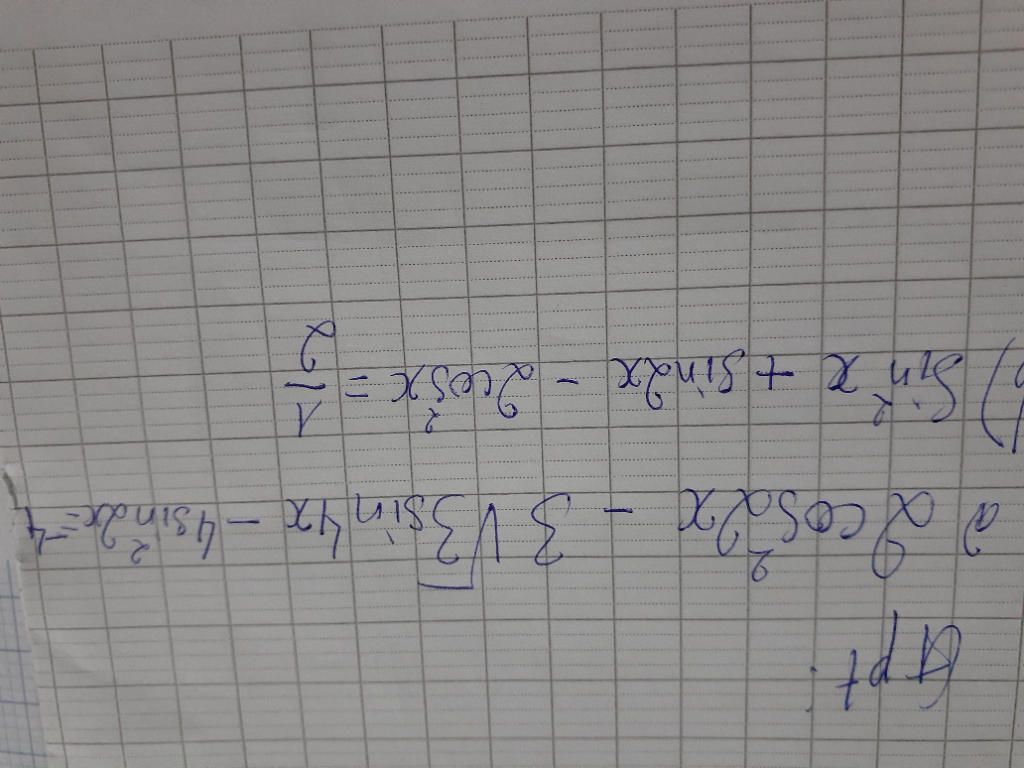 Gpt:
a) 2cos²2x - 3√3sin4x - 4sin²2x = -4
b) sin²x + sin2x - 2cos²x = 1/2